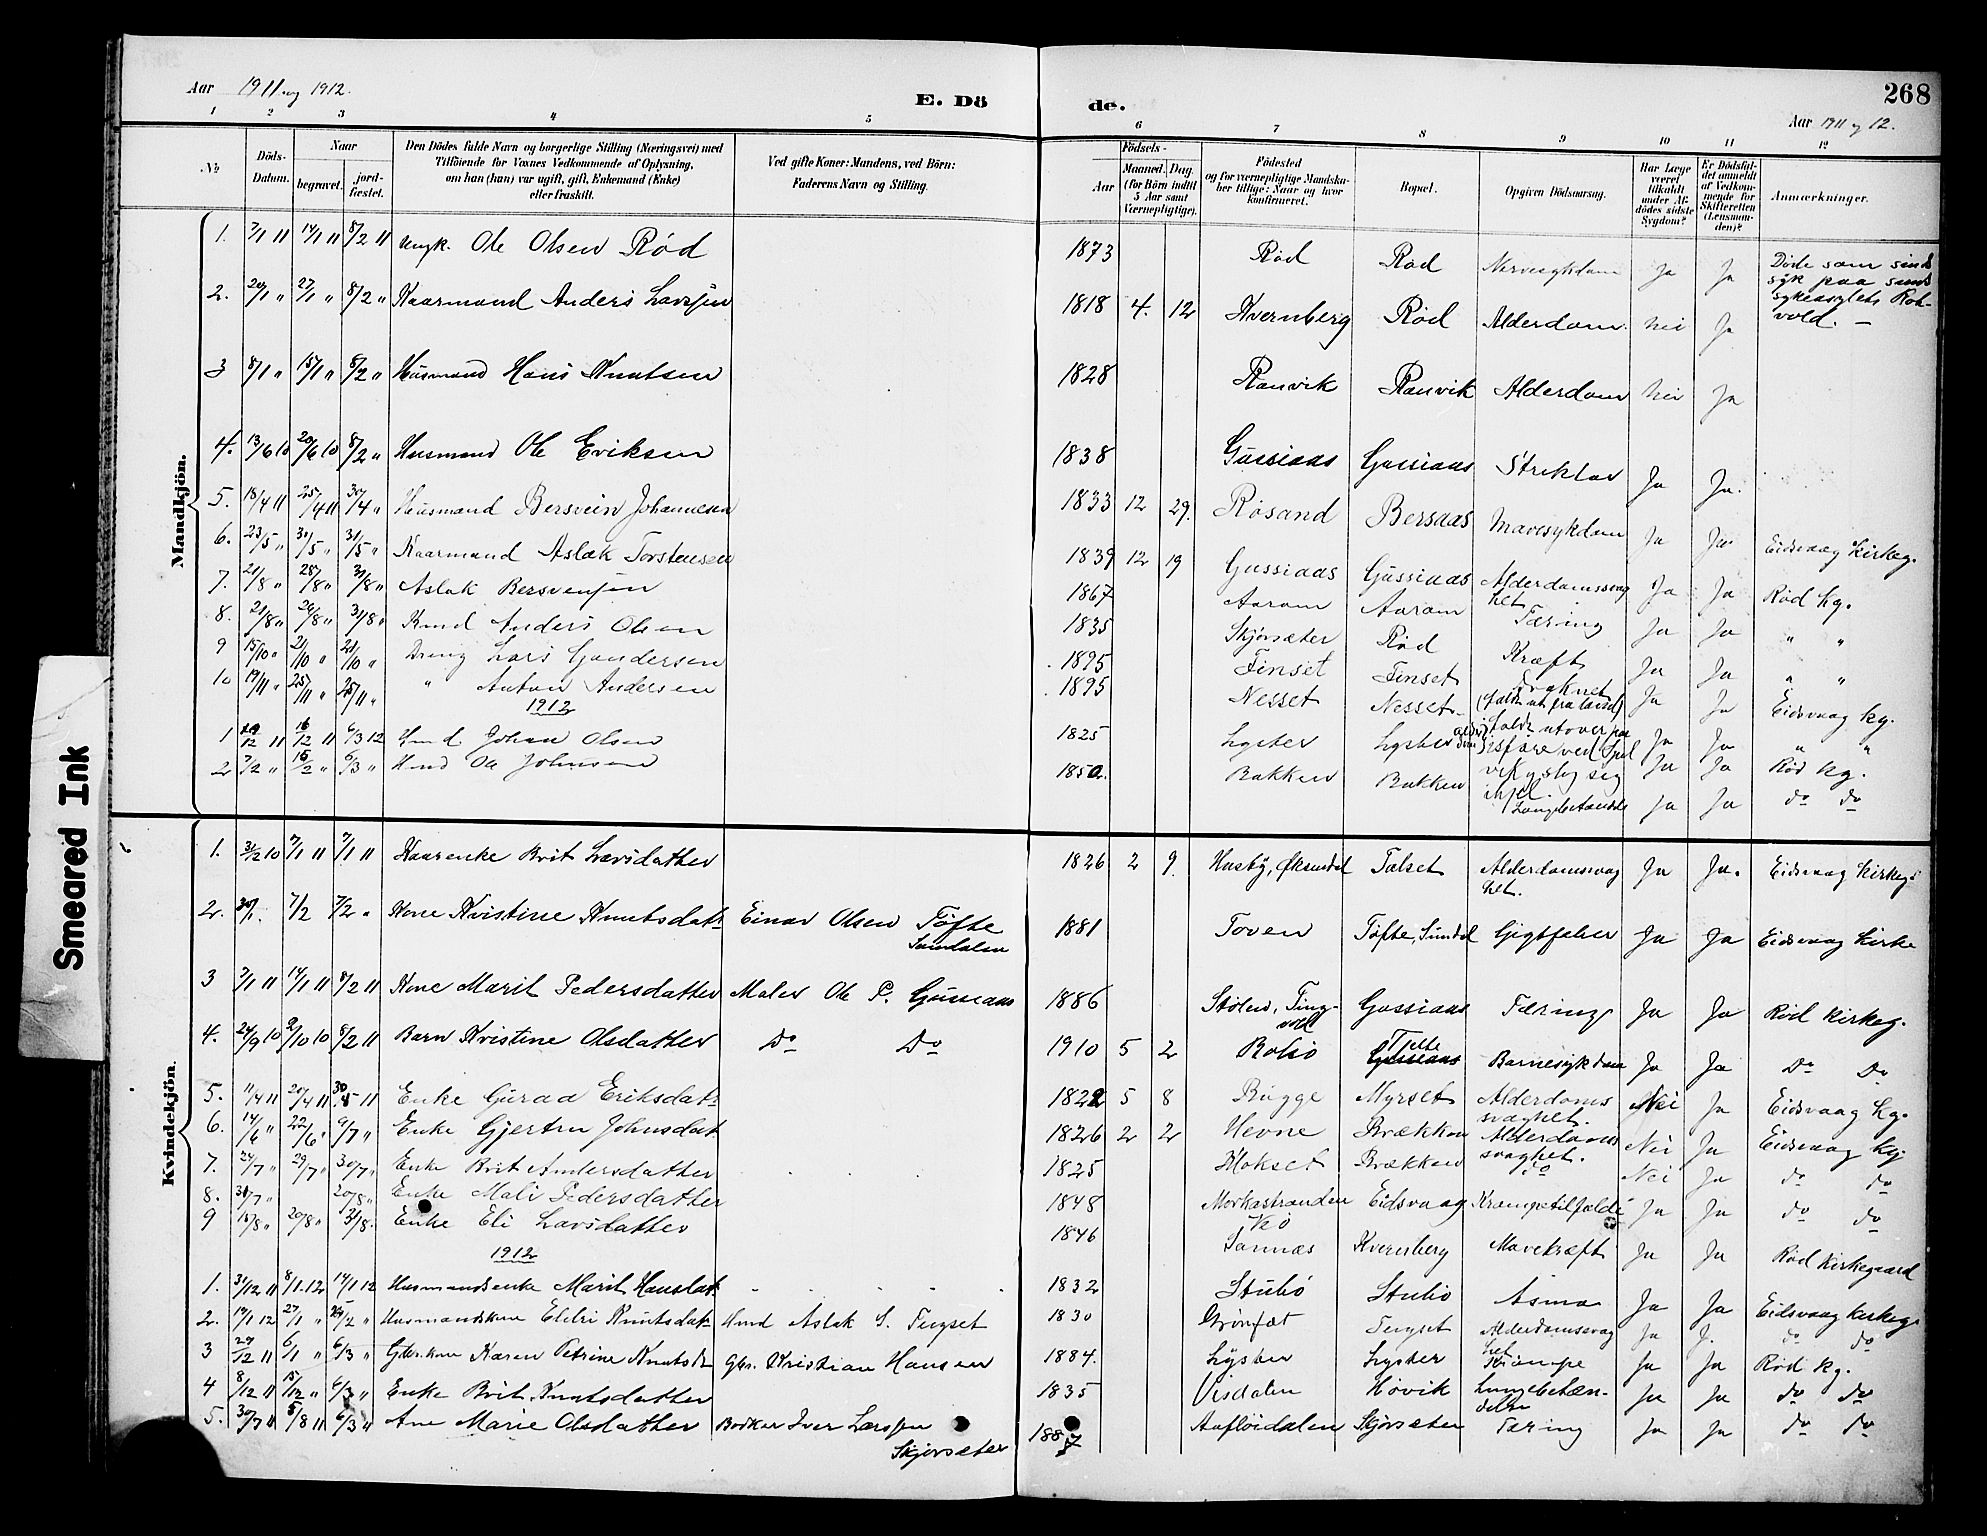 Aar 1911 og 1912.
E. Dö de.
268
Aar 1911 og 12.
1 2 3 4 5 6 7 8 9 10 11 12
No
Döds-Datum.
Naar
begravet.
jord-fæstet.
Den Dödes fulde Navn og borgerlige Stilling (Næringsvei) med
Tilföiende for Voxnes Vedkommende af Oplysning,
om han (hun) var ugift, gift, Enkemand (Enke)
eller fraskilt.
Ved gifte Koner: Mandens, ved Börn:
Faderens Navn og Stilling.
Födsels-
Aar
Maaned. Dag.
(for Börn indtil
5 Aar samt
Værnepligtige).
Födested
og for værnepligtige Mandska-
ber tillige: Naar og hvor
konfirmeret.
Bopæl.
Opgiven Dödsaarsag.
Har Læge
været
tilkaldt
under Af-
dödes sidste
Sygdom?
Er Dödsfal-
det anmeldt
af Vedkom-
mende for
Skifteretten
(Lensman-
den)?
Anmærkninger.
Mandkjön.
1. 7/1 11 14/1 11 8/2 11 Ungk. Ole Olsen Rød 1873 Rød Rød Nervesykdom Ja Ja Døde som sind
syk paa sind
sykeasylet Rot-
vold. —
2. 20/1 " 27/1 " 8/2 " Kaarmand Anders Larsen 1818 4. 12 Kvernberg Rød Alderdom. Nei Ja
3 8/1 " 15/1 " 8/2 " Husmand Hans Knutsen 1828 Ranvik Ranvik Alderdom Nei Ja
4. 13/6 10 20/6 10 8/2 " Husmand Ole Eriksen 1838 Gussiaas Gussiaas Ja Ja.
5. 18/4 11 25/4 11 30/4 " Husmand Bersvein Johannesen 1833 12 29. Rosand Bersaas Mavesykdom Ja Ja
6. 23/5 " 31/5 " 31/5 " Kaarmand Aslak Torstensen 1839 12 19 Gussiaas Gussiaas Alderdomssvag
het Ja Ja Eidsvaag Kirkeg.
7. 21/8 " 28/8 " 31/8 " Aslak Bersvensen 1867 Aaram Aaram Tæring Ja Ja Rød Kg.
8. 21/8 " 29/8 " 31/8 " Anders Olsen 1835 Skjørsæter Rød Kræft Ja Ja " "
9 15/10 " 21/10 " 21/10 " Dreng Lars Gundersen 1895 Finset Finset Ja Ja " "
10 19/11 " 25/11 " 25/11 " " Anton Andersen 1895 Nesset Nesset Ja Ja Eidsvaag Kg.
1912
1 12 11 16/12 11 6/3 12 Hmd Johan Olsen 1825 Lyster Lyster Ja Ja " "
2 7/2 " 16/2 " 6/3 " Hmd Ole Johnsen 1850. Bakken Bakken Lungebetænd Ja Ja Rød Kg.
do do
Kvindekjön.
1. 31/2 10 7/1 11 7/1 11 Kaarenke Brit Larsdatter 1826 2 9. Husby, Øksendal Talset Alderdomssvag
het. Ja Ja. Eidsvaag Kirkeg.
2. 30/1. 7/2 7/2 " Kone Kristine Knutsdatr Einar Olsen Tøfte
Sundalen 1881 Toven Tøfte, Sundal Gigtfeber Ja Ja Eidsvaag Kirke
3 7/1 11 14/1 11 8/2 11 Kone Marit Pedersdatter Maler Ole P. Gussiaas 1886 Stølen, Ting-
vold Gussiaas Tæring Ja Ja Rød Kirkeg.
4. 24/9 10 2/10 10 8/2 11 Barn Kristine Olsdatter Do Do 1910 5 2 Gussiaas Barnesykdom Ja Ja Do Do
5. 11/4 11 20/4 11 30/5 11 Enke Guraa Eriksdatr 1822 5 8 Bugge Myrset Alderdoms
svaghet. Nei Ja Eidsvaag Kg.
6. 14/6 " 22/6 " 9/7 " Enke Gjertru Johnsdat 1826 2 2 Hevne Brækken Alderdoms
svaghet. Nei Ja Eidsvaag Kg
7. 24/7 " 29/7 " 30/7 " Enke Brit Andersdatter 1825 Klokset Brækken do Nei Ja do do
8. 31/7 " 20/8 " Enke Mali Pedersdatter 1848 Morkastranden Eidsvaag Krampetilfælde Ja Ja do do
9 15/8 " 20/8 " 31/8 " Enke Eli Larsdatter 1846 Sannæs Kvernberg Mavekræft Ja Ja Rød Kirkegaard
1912
1. 31/12 11 8/1 12 14/1 12 Husmandsenke Marit Hansdat 1832 Stubø Stubø Asma Ja Ja Eidsvaag Kirkeg.
2. 19/1 12 27/1 " 24/2 " Husmandskone Eldri Knutsdatr Hmd Aslak S. Tengset 1830 Grønfæt Tengset Alderdomssvag
het Ja J. do do
3 29/12 11 6/1 " 6/3 " Karen Petrine Knutsdr Gbr. Kristian Hansen 1884. Lyster Lyster Krampe Ja Ja Rød Kg.
4 8/12 11 15/12 " 6/3 " Enke Brit Knutsdatter 1835 Visdalen Høvik Lungebetæn-
delse Ja Ja do do
5. 30/7 11 5/8 11 6/3 " Ane Marie Olsdatter Bødker Iver Larssen
Skjørsæter 1887 Aafløidalen Skjørsæter Tæring Ja Ja do do
Smeared Ink